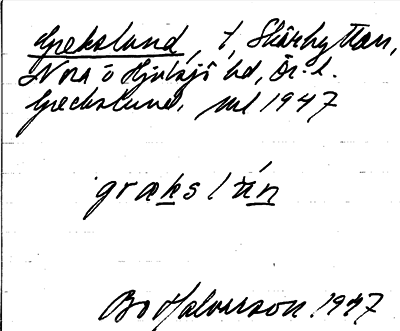 Grekslund, t, Skärhyttan,
Nora o Hjulsjö bd, Ör. l.
Greckslund. 1947
græks l
Bo Halvarson. 1947